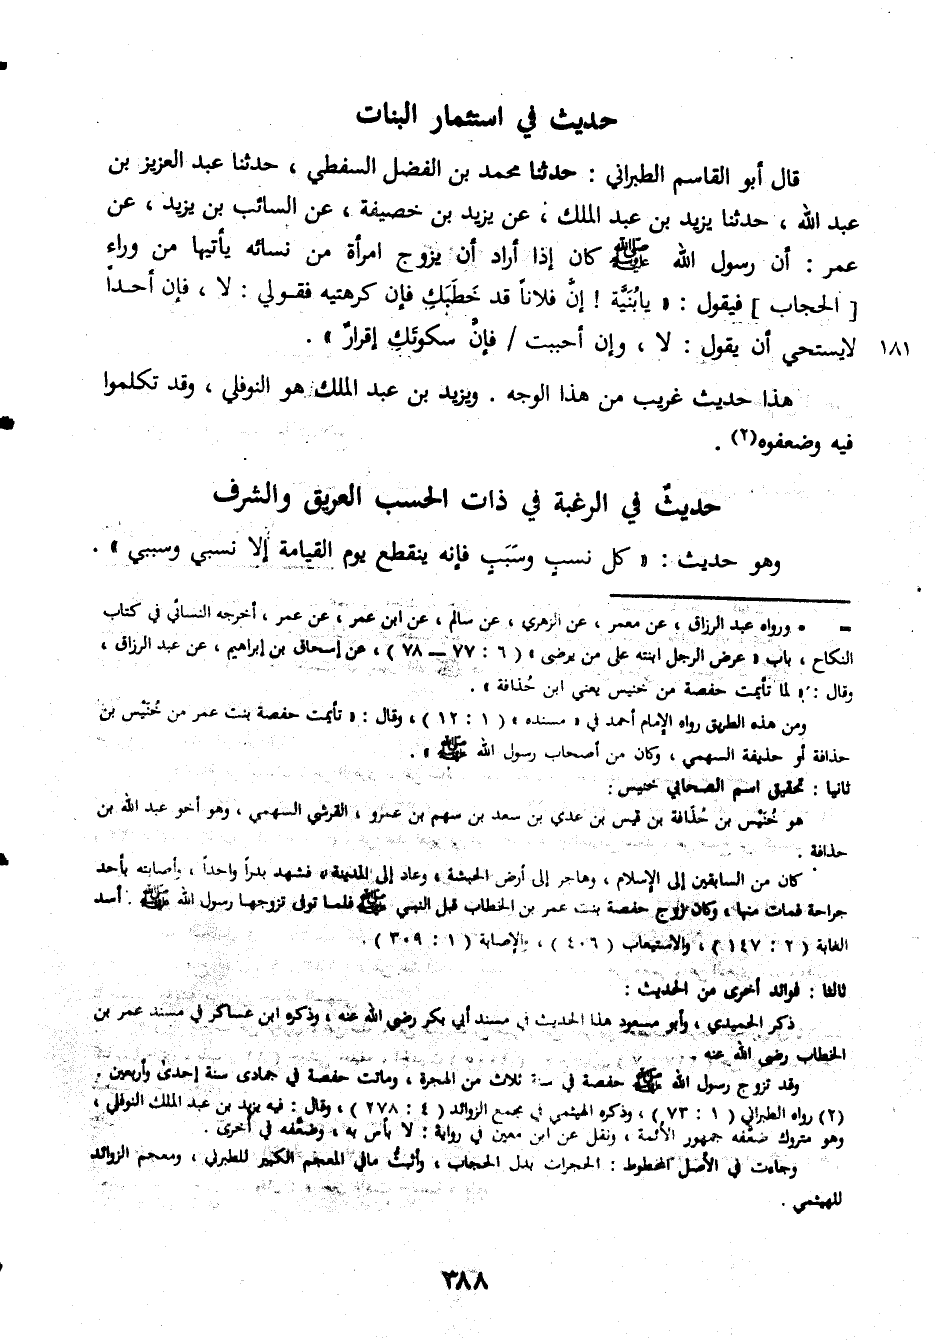 حديث في استئمار البنات
قال أبو القاسم الطبراني : حدثنا محمد بن الفضل السفطي ، حدثنا عبد العزيز بن
عبد الله ، حدثنا يزيد بن عبد الملك ، عن يزيد بن خصيفة ، عن السائب بن يزيد ، عن
عمر : أن رسول الله ﷺ كان إذا أراد أن يزوج امرأة من نسائه يأتيها من وراء
[ الحجاب ] فيقول : « يابُنَيَّة ! إنَّ فلاناً قد خَطَبَكِ فإن كرهتيه فقولي : لا ، فإن أحداً
لايستحي أن يقول : لا ، وإن أحببت / فإنَّ سكوتَكِ إقرارٌ » .
١٨١
هذا حديث غريب من هذا الوجه . ويزيد بن عبد الملك هو النوفلي ، وقد تكلموا
فيه وضعفوه(٢) .
حديثٌ في الرغبة في ذات الحسب العريق والشرف
وهو حديث : « كل نسبٍ وسَبَبٍ فإنه ينقطع يوم القيامة إلا نسبي وسببي » .
= • ورواه عبد الرزاق ، عن معمر ، عن الزهري ، عن سالم ، عن ابن عمر ، عن عمر ، أخرجه النسائي في كتاب
النكاح ، باب « عرض الرجل ابنته على من يرضى » ( ٦ : ٧٧ – ٧٨ ) ، عن إسحاق بن إبراهيم ، عن عبد الرزاق ،
وقال : « لما تأيمت حفصة من خنيس يعني ابن حُذافة » .
ومن هذه الطريق رواه الإمام أحمد في « مسنده » ( ١ : ١٢ ) ، وقال : « تأيمت حفصة بنت عمر من خُنَيْس بن
حذافة أو حذيفة السهمي ، وكان من أصحاب رسول الله ﷺ » .
ثانيا : تحقيق اسم الصحابي خنيس :
هو خُنَيْس بن حُذَافة بن قيس بن عدي بن سعد بن سهم بن عمرو ، القرشي السهمي ، وهو أخو عبد الله بن
حذافة .
كان من السابقين إلى الإسلام ، وهاجر إلى أرض الحبشة ، وعاد إلى المدينة ، فشهد بدراً وأحداً ، وأصابته بأحد
جراحة فمات منها ، وكان تزوج حفصة بنت عمر بن الخطاب قبل النبي ﷺ فلما توفى تزوجها رسول الله ﷺ . أسد
الغابة ( ٢ : ١٤٧ ) ، والاستيعاب ( ٤٠٦ ) ، والإصابة ( ١ : ٣٠٩ ) .
ثالثا : فوائد أخرى من الحديث :
ذكر الحميدي ، وأبو مسعود هذا الحديث في مسند أبي بكر رضي الله عنه ، وذكره ابن عساكر في مسند عمر بن
الخطاب رضي الله عنه .
وقد تزوج رسول الله ﷺ حفصة في سنة ثلاث من الهجرة ، وماتت حفصة في جمادى سنة إحدى وأربعين .
(٢) رواه الطبراني ( ١ : ٧٣ ) ، وذكره الهيثمي في مجمع الزوائد ( ٤ : ٢٧٨ ) ، وقال : فيه يزيد بن عبد الملك النوفلي ،
وهو متروك ضعَّفه جمهور الأئمة ، ونقل عن ابن معين في رواية : لا بأس به ، وضعَّفه في أخرى .
وجاءت في الأصل المخطوط : الحجرات بدل الحجاب ، وأثبتُّ مافي المعجم الكبير للطبرني ، ومعجم الزوائد
للهيثمي .
٣٨٨